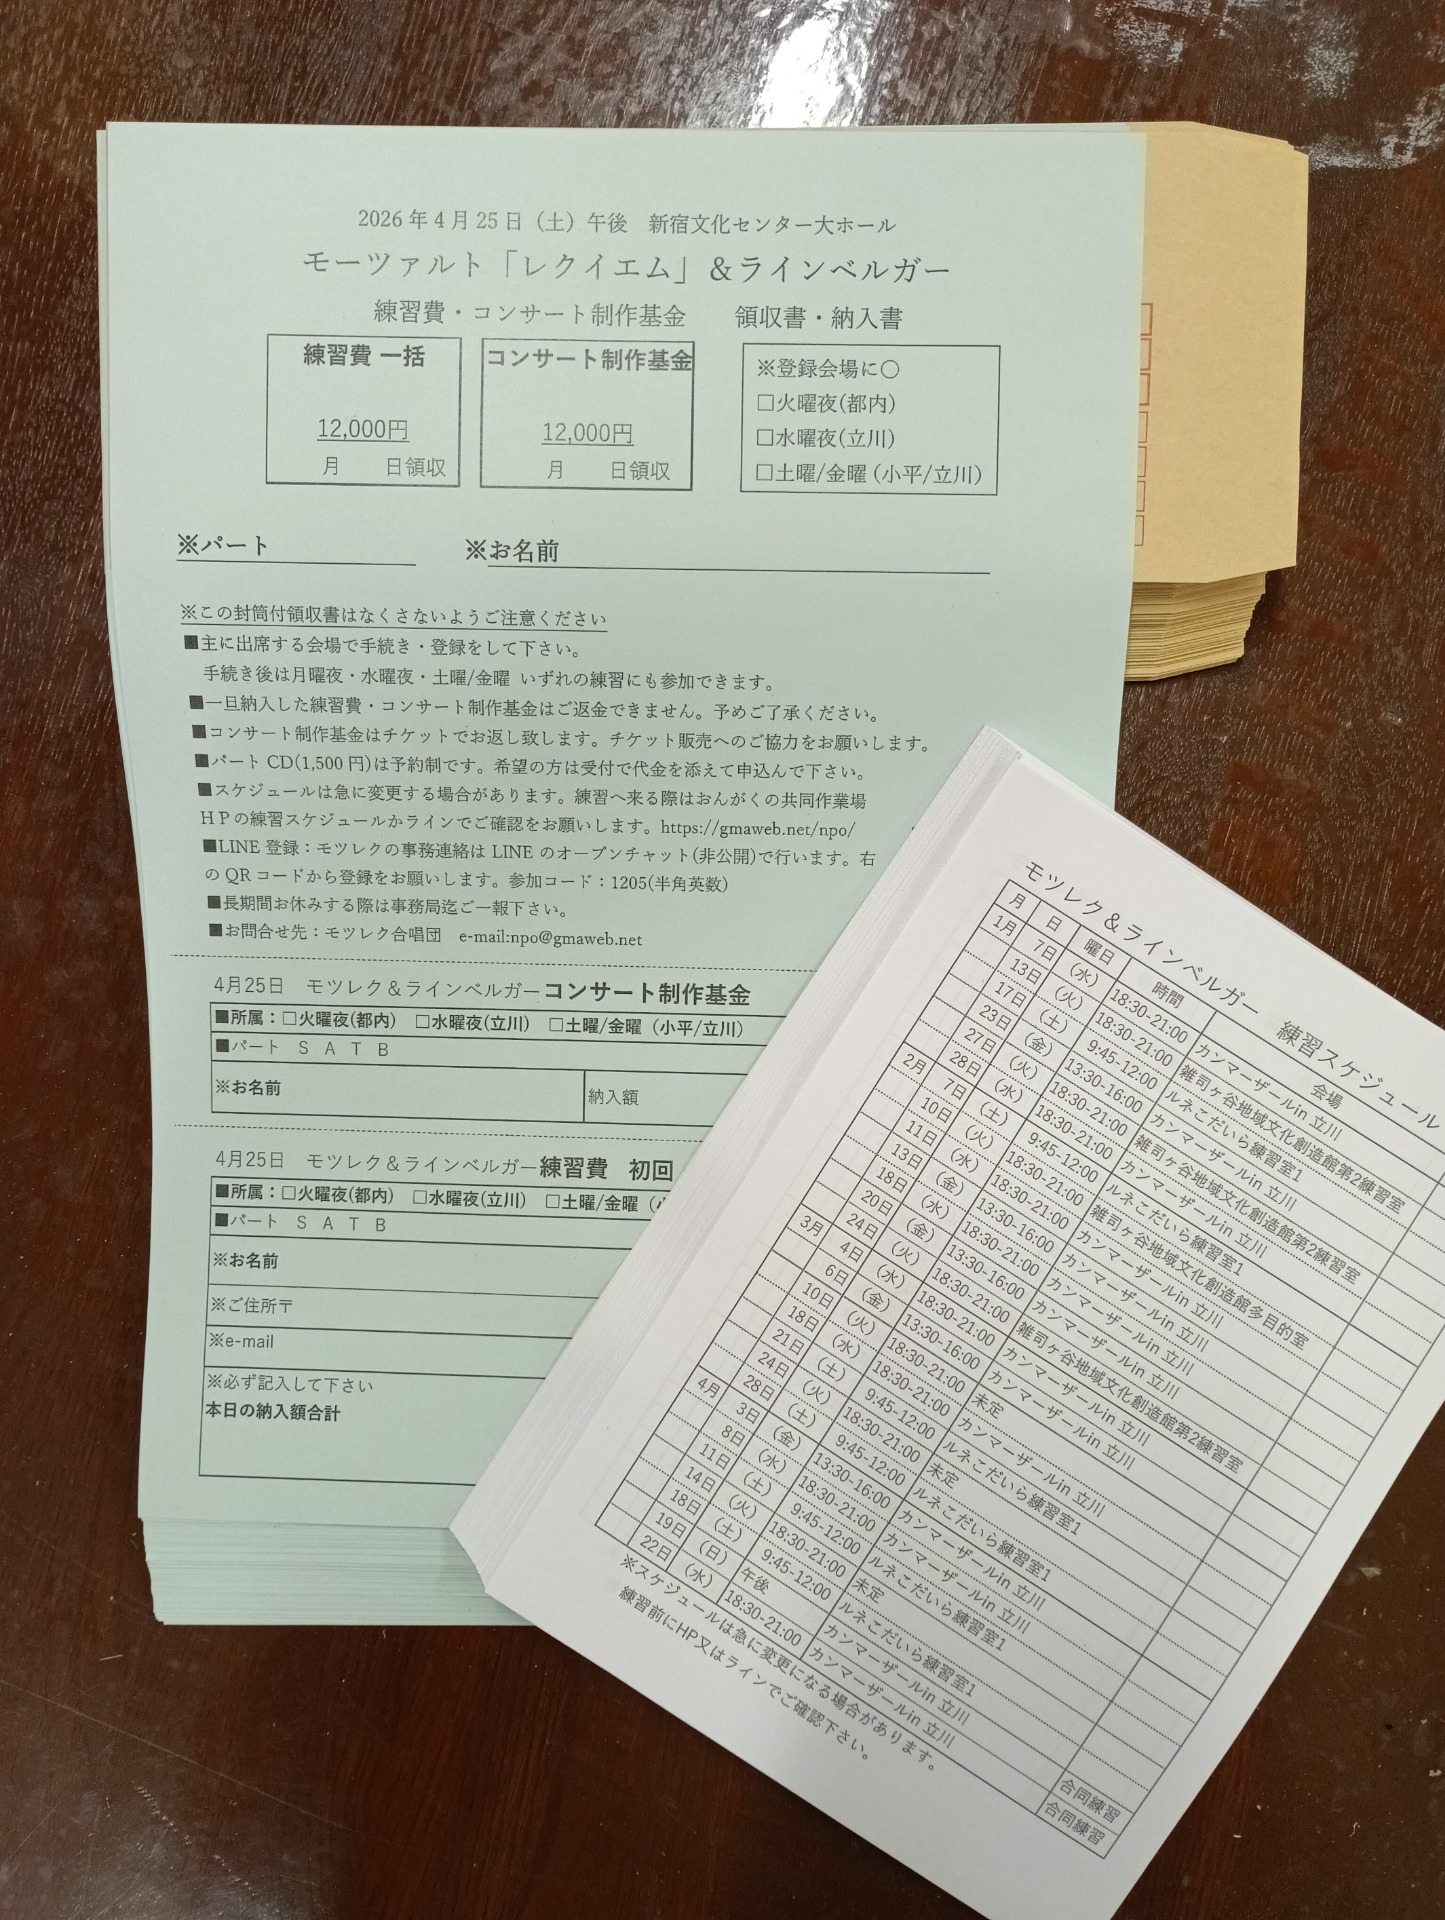 2026年4月25日（土）午後　新宿文化センター大ホール
モーツァルト「レクイエム」＆ラインベルガー
練習費・コンサート制作基金　　領収書・納入書
練習費 一括
12,000円
月　　日領収
コンサート制作基金
12,000円
月　　日領収
※登録会場に〇
□火曜夜(都内)
□水曜夜(立川)
□土曜/金曜 (小平/立川)
※パート
※お名前
※この封筒付領収書はなくさないようご注意ください
■主に出席する会場で手続き・登録をして下さい。
手続き後は月曜夜・水曜夜・土曜/金曜 いずれの練習にも参加できます。
■一旦納入した練習費・コンサート制作基金はご返金できません。予めご了承ください。
■コンサート制作基金はチケットでお返し致します。チケット販売へのご協力をお願いします。
■パート CD(1,500 円)は予約制です。希望の方は受付で代金を添えて申込んで下さい。
■スケジュールは急に変更する場合があります。練習へ来る際はおんがくの共同作業場
ＨＰの練習スケジュールかラインでご確認をお願いします。https://gmaweb.net/npo/
■LINE 登録：モツレクの事務連絡は LINE のオープンチャット(非公開)で行います。右
の QR コードから登録をお願いします。参加コード：1205(半角英数)
■長期間お休みする際は事務局迄ご一報下さい。
■お問合せ先：モツレク合唱団　e-mail:npo@gmaweb.net
4月25日　モツレク＆ラインベルガーコンサート制作基金
■所属：□火曜夜(都内)　□水曜夜(立川)　□土曜/金曜（小平/立川）
■パート　S　A　T　B
※お名前
納入額
4月25日　モツレク＆ラインベルガー練習費　初回
■所属：□火曜夜(都内)　□水曜夜(立川)　□土曜/金曜
■パート　S　A　T　B
※お名前
※ご住所〒
※e-mail
※必ず記入して下さい
本日の納入額合計
モツレク＆ラインベルガー　練習スケジュール
月　日　曜日　時間　会場
1月　7日　(水)　18:30-21:00　カンマーザールin 立川
13日　(火)　18:30-21:00　雑司ヶ谷地域文化創造館第2練習室
17日　(土)　9:45-12:00　ルネこだいら練習室1
23日　(金)　13:30-16:00　カンマーザールin 立川
27日　(火)　18:30-21:00　雑司ヶ谷地域文化創造館第2練習室
28日　(水)　18:30-21:00　カンマーザールin 立川
2月　7日　(土)　9:45-12:00　ルネこだいら練習室1
10日　(火)　18:30-21:00　雑司ヶ谷地域文化創造館多目的室
11日　(水)　18:30-21:00　カンマーザールin 立川
13日　(金)　13:30-16:00　カンマーザールin 立川
18日　(水)　18:30-21:00　カンマーザールin 立川
20日　(金)　13:30-16:00　カンマーザールin 立川
24日　(火)　18:30-21:00　雑司ヶ谷地域文化創造館第2練習室
3月　4日　(水)　18:30-21:00　カンマーザールin 立川
6日　(金)　13:30-16:00　カンマーザールin 立川
10日　(火)　18:30-21:00　未定
18日　(水)　18:30-21:00　カンマーザールin 立川
21日　(土)　9:45-12:00　ルネこだいら練習室1
24日　(火)　18:30-21:00　未定
28日　(土)　9:45-12:00　ルネこだいら練習室1
4月　3日　(金)　13:30-16:00　カンマーザールin 立川
8日　(水)　18:30-21:00　カンマーザールin 立川
11日　(土)　9:45-12:00　ルネこだいら練習室1
14日　(火)　18:30-21:00　未定
18日　(土)　9:45-12:00　ルネこだいら練習室1
19日　(日)　午後　カンマーザールin 立川　合同練習
22日　(水)　18:30-21:00　カンマーザールin 立川　合同練習
※スケジュールは急に変更になる場合があります。
練習前にHP又はラインでご確認下さい。